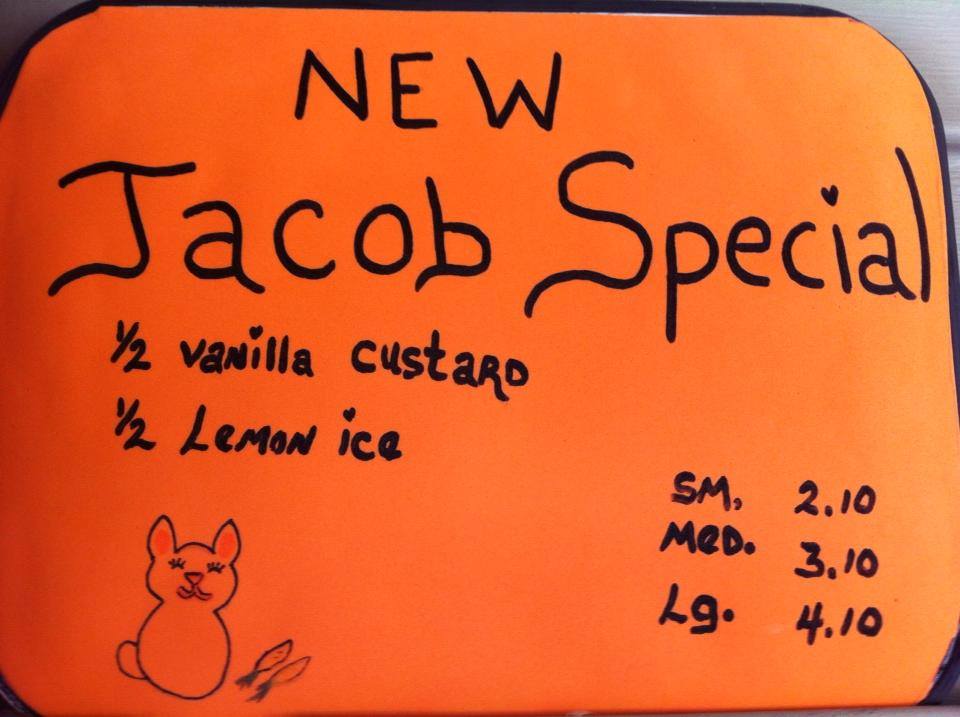 NEW
Jacob Special
1/2 vanilla custard
1/2 Lemon ice
SM, 2.10
Med. 3.10
Lg. 4.10